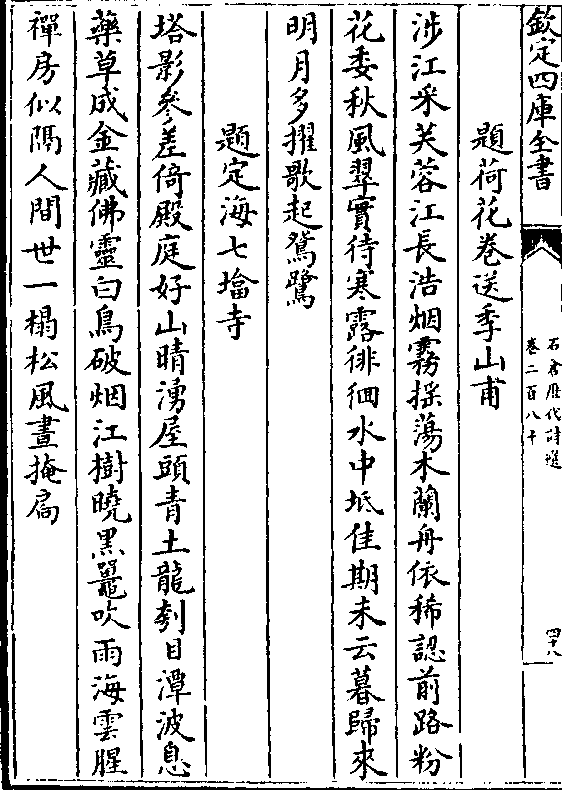 欽定四庫全書
石倉歷代詩選
卷二百八十
四十八
題荷花卷送季山甫
涉江采芙蓉江長浩烟霧操蕩木蘭舟依稀認前路粉
花委秋風翠實待寒露徘徊水中坻佳期未云暮歸來
明月多擢歌起鴛鷺
題定海七塔寺
塔影參差倚殿庭好山晴湧屋頭青土龍刳目潭波息
藥草成金藏佛靈白鳥破烟江樹曉黑鼉吹雨海雲腥
禪房似隔人間世一榻松風晝掩扃